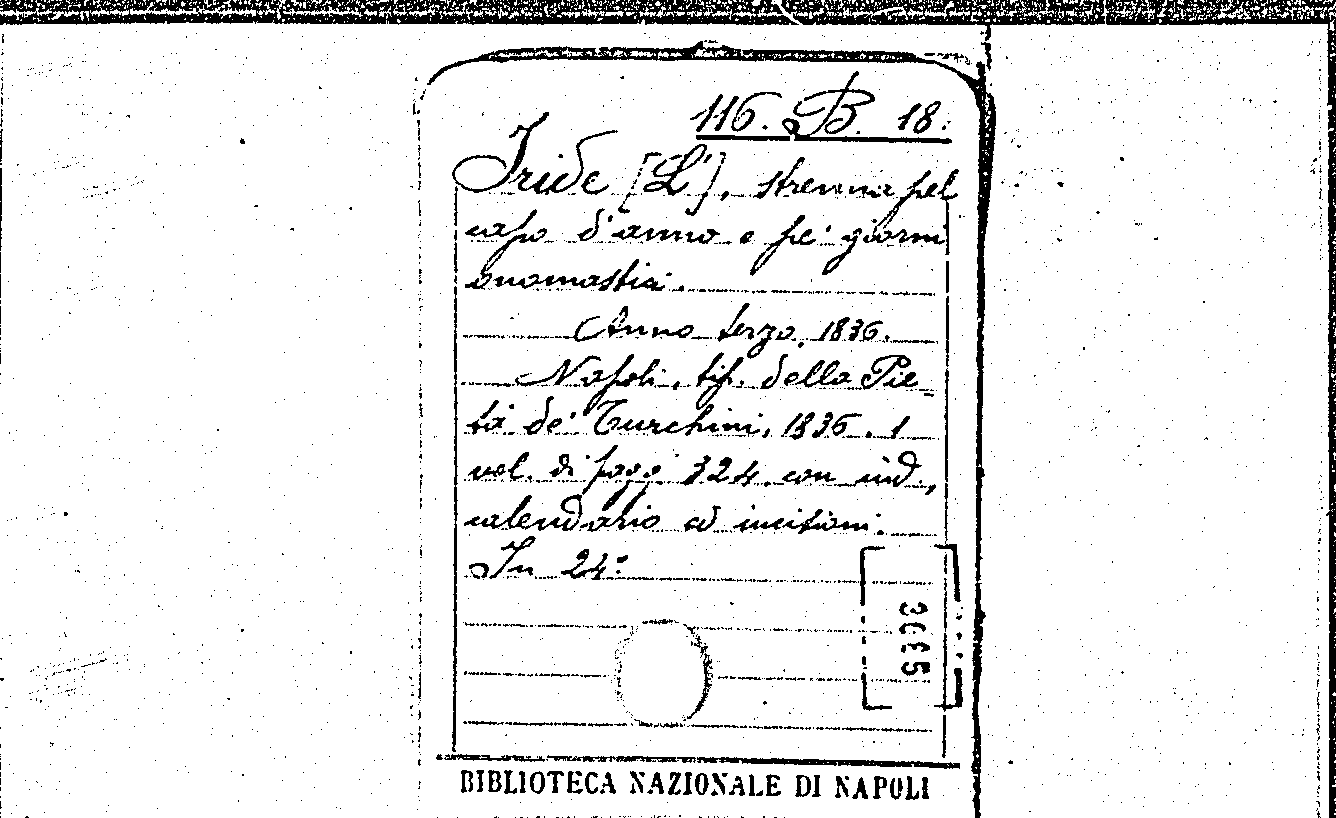 116. B. 18.
Iride [L'], strenna pel
capo d'anno e pe' giorni
onomastici.
Anno terzo, 1836.
Napoli, tip. della Pie-
tà de' Turchini, 1836. 1
vol. di pagg. 324. con ind.,
calendario ed incisioni.
In 24º
BIBLIOTECA NAZIONALE DI NAPOLI